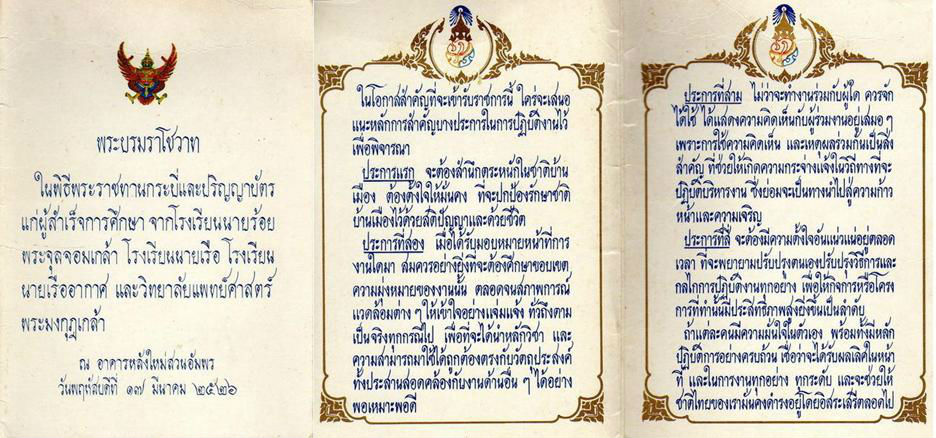 พระบรมราโชวาท
ในพิธีพระราชทานกระบี่และปริญญาบัตร
แก่ผู้สำเร็จการศึกษา จากโรงเรียนนายร้อย
พระจุลจอมเกล้า โรงเรียนนายเรือ โรงเรียน
นายเรืออากาศ และวิทยาลัยแพทย์ศาสตร์
พระมงกุฎเกล้า
ณ อาคารหลังใหม่สวนอัมพร
วันพฤหัสบดีที่ ๑๗ มีนาคม ๒๕๒๖
ในโอกาสสำคัญที่จะเข้ารับราชการนี้ ใคร่จะเสนอ
แนะหลักการสำคัญบางประการในการปฏิบัติงานไว้
เพื่อพิจารณา
ประการแรก จะต้องสำนึกตระหนักในชาติบ้าน
เมือง ต้องตั้งใจให้มั่นคง ที่จะปกป้องรักษาชาติ
บ้านเมืองไว้ด้วยสติปัญญาและด้วยชีวิต
ประการที่สอง เมื่อได้รับมอบหมายหน้าที่การ
งานใดมา สมควรอย่างยิ่งที่จะต้องศึกษาขอบเขต
ความมุ่งหมายของงานนั้น ตลอดจนสภาพการณ์
แวดล้อมต่างๆ ให้เข้าใจอย่างแจ่มแจ้ง ทั่วถึงตาม
เป็นจริงทุกกรณีไป เพื่อที่จะได้นำหลักวิชา และ
ความสามารถมาใช้ได้ถูกต้องตรงกับวัตถุประสงค์
ทั้งประสานสอดคล้องกับงานด้านอื่น ๆ ได้อย่าง
พอเหมาะพอดี
ประการที่สาม ไม่ว่าจะทำงานร่วมกับผู้ใด ควรจัก
ได้ใช้ ได้แสดงความคิดเห็นกับผู้ร่วมงานอยู่เสมอ ๆ
เพราะการใช้ความคิดเห็น และเหตุผลร่วมกันเป็นสิ่ง
สำคัญ ที่ช่วยให้เกิดความกระจ่างแจ้งในวิถีทางที่จะ
ปฏิบัติบริหารงาน ซึ่งย่อมจะเป็นทางนำไปสู่ความก้าว
หน้าและความเจริญ
ประการที่สี่ จะต้องมีความตั้งใจอันแน่วแน่อยู่ตลอด
เวลา ที่จะพยายามปรับปรุงตนเองปรับปรุงวิธีการและ
กลไกการปฏิบัติงานทุกอย่าง เพื่อให้กิจการหรือโครง
การที่ทำนั้นมีประสิทธิภาพสูงยิ่งขึ้นเป็นลำดับ
ถ้าแต่ละคนมีความมั่นใจในตัวเอง พร้อมทั้งมีหลัก
ปฏิบัติการอย่างครบถ้วน เชื่อว่าจะได้รับผลเลิศในหน้า
ที่ และในการงานทุกอย่าง ทุกระดับ และจะช่วยให้
ชาติไทยของเรามั่นคงดำรงอยู่โดยอิสระเสรีตลอดไป